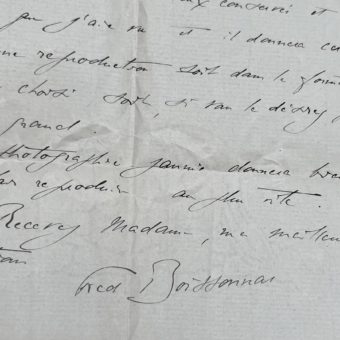 conservé et
que j'ai vu et il donnera
une reproduction soit dans le
choisi soit, si vous le désirez,
grand.
photographie jaunie donnera
reproduire au plus vite.
Recevez Madame, me meilleu
Fred Boissonnas